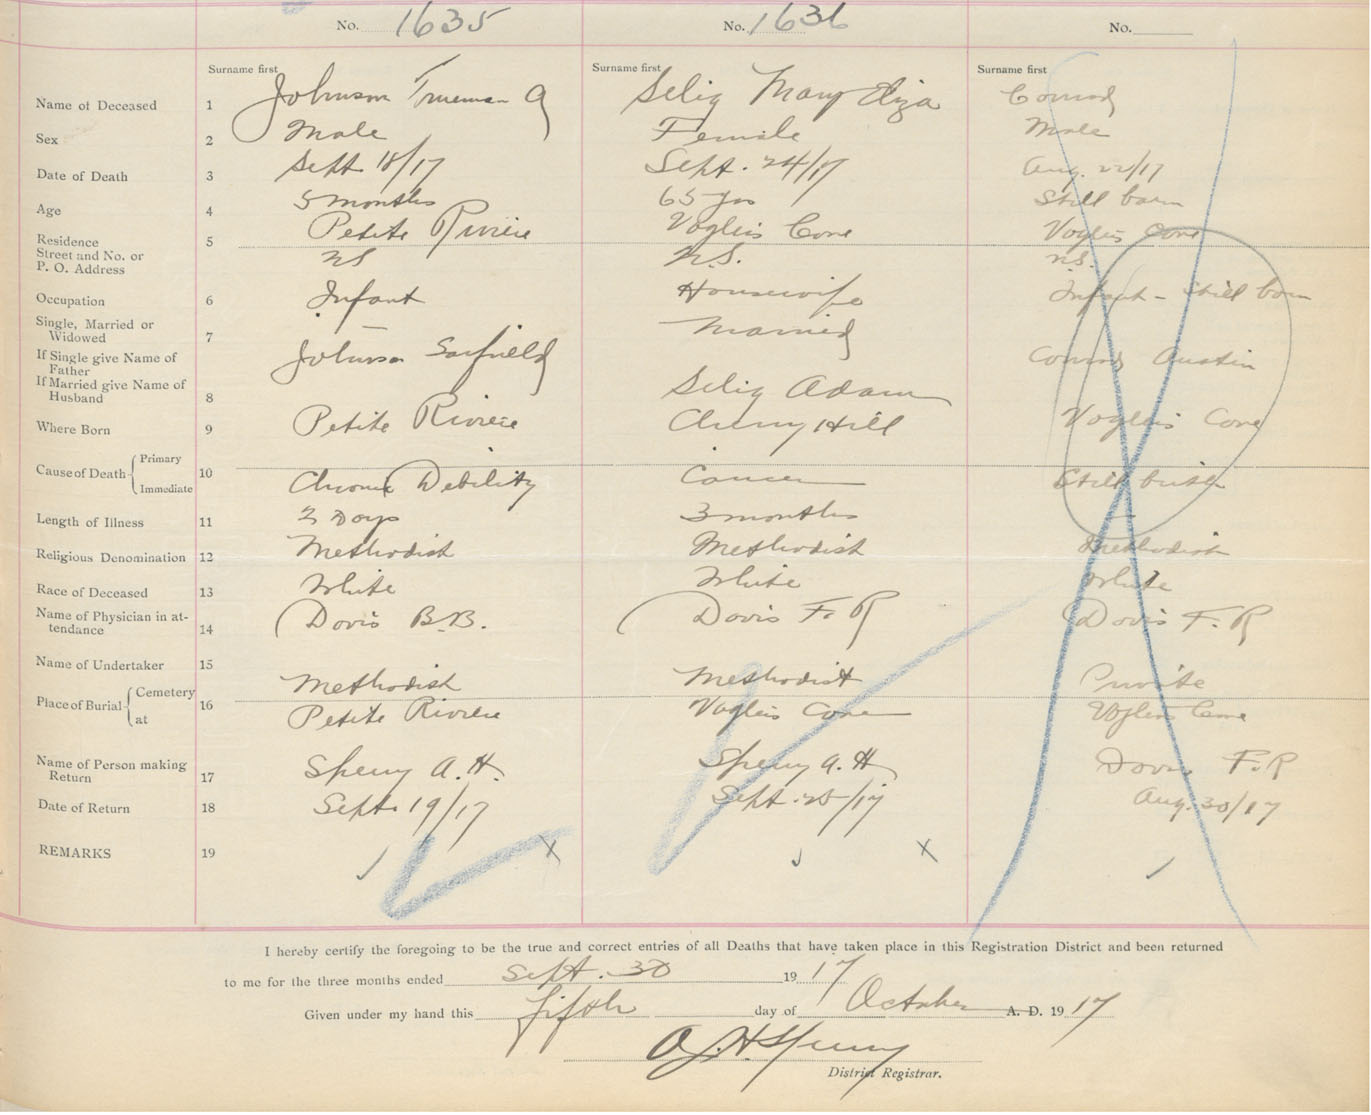 No. 1635 No. 1636 No.
Surname first Surname first Surname first
Name of Deceased 1 Johnson Trueman G Selig Mary Eliza Conrad
Sex 2 Male Female Male
Date of Death 3 Sept 18/17 Sept. 24/17 Aug. 22/17
Age 4 5 months 65 yrs Still born
Residence Street and No. or P. O. Address 5 Petite Riviere NS Voglers Cove N.S. Voglers Cove N.S.
Occupation 6 Infant Housewife Infant - Still born
Single, Married or Widowed 7 — Married
If Single give Name of Father Johnson Conrad Austin
If Married give Name of Husband 8 Selig Adam
Where Born 9 Petite Riviere Cherry Hill Voglers Cove
Cause of Death { Primary Immediate 10 Chronic Debility Cancer Still birth
Length of Illness 11 2 Days 3 months —
Religious Denomination 12 Methodist Methodist Methodist
Race of Deceased 13 White White White
Name of Physician in attendance 14 Davis B.B. Davis F. R Davis F. R
Name of Undertaker 15
Place of Burial { Cemetery 16 Methodist Methodist Private
at Petite Riviere Voglers Cove Voglers Cove
Name of Person making Return 17 Sperry A. H. Sperry A. H Davis F. R
Date of Return 18 Sept. 19/17 Sept. 25/17 Aug. 30/17
REMARKS 19 x x
I hereby certify the foregoing to be the true and correct entries of all Deaths that have taken place in this Registration District and been returned
to me for the three months ended Sept. 30 19 17
Given under my hand this fifth day of October A. D. 19 17
A. H Sperry
District Registrar.